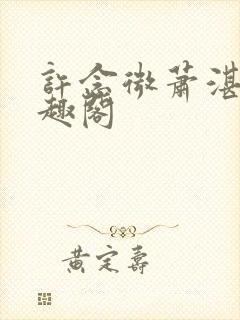 許念微蕭湛
趣閣
黃定壽